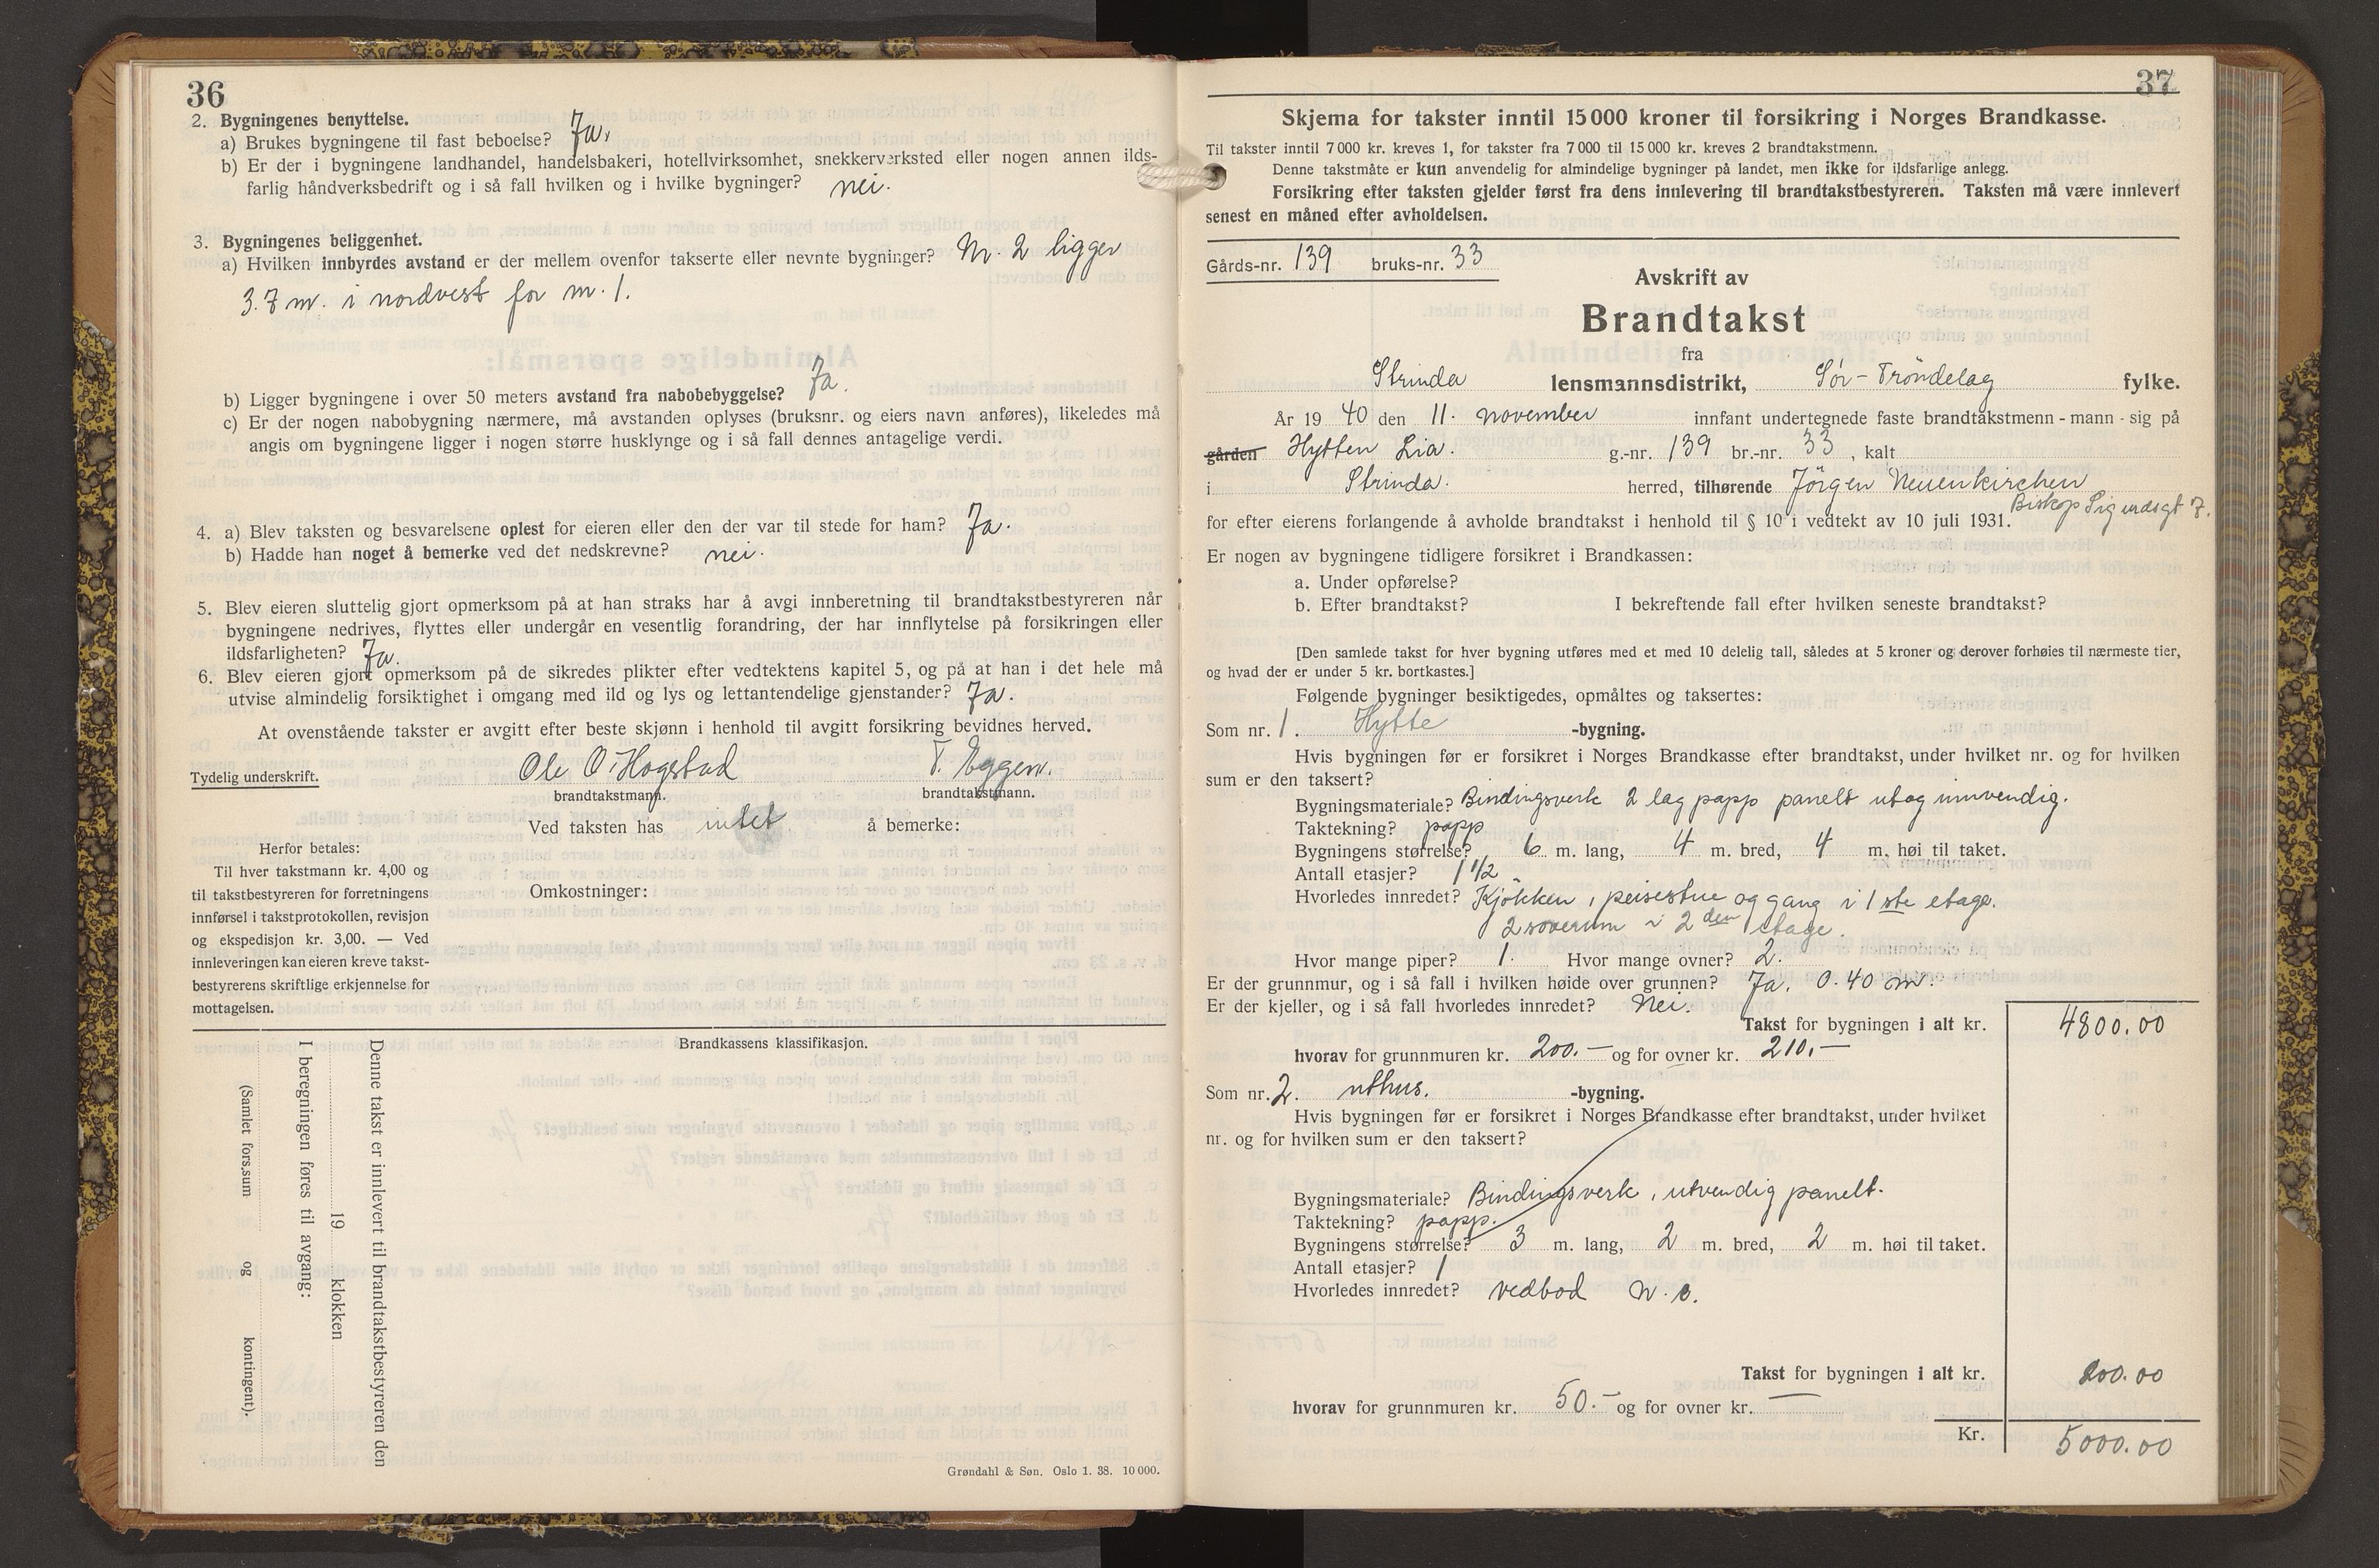 36
2. Bygningenes benyttelse.
a) Brukes bygningene til fast beboelse? Ja.
b) Er der i bygningene landhandel, handelsbakeri, hotellvirksomhet, snekkerverksted eller nogen annen ilds-
farlig håndverksbedrift og i så fall hvilken og i hvilke bygninger? nei.
3. Bygningenes beliggenhet.
a) Hvilken innbyrdes avstand er der mellem ovenfor takserte eller nevnte bygninger? Nr. 2 ligger
3.7 m. i nordvest for nr. 1.
b) Ligger bygningene i over 50 meters avstand fra nabobebyggelse? Ja.
c) Er der nogen nabobygning nærmere, må avstanden oplyses (bruksnr. og eiers navn anføres), likeledes må
angis om bygningene ligger i nogen større husklynge og i så fall dennes antagelige verdi.
4. a) Blev taksten og besvarelsene oplest for eieren eller den der var til stede for ham? Ja.
b) Hadde han noget å bemerke ved det nedskrevne? nei.
5. Blev eieren sluttelig gjort opmerksom på at han straks har å avgi innberetning til brandtakstbestyreren når
bygningene nedrives, flyttes eller undergår en vesentlig forandring, der har innflytelse på forsikringen eller
ildsfarligheten? Ja.
6. Blev eieren gjort opmerksom på de sikredes plikter efter vedtektens kapitel 5, og på at han i det hele må
utvise almindelig forsiktighet i omgang med ild og lys og lettantendelige gjenstander? Ja.
At ovenstående takster er avgitt efter beste skjønn i henhold til avgitt forsikring bevidnes herved.
Tydelig underskrift. Ole O. Hogstad T. Eggen.
brandtakstmann. brandtakstmann.
Ved taksten has intet å bemerke:
Herfor betales:
Til hver takstmann kr. 4,00 og
til takstbestyreren for forretningens
innførsel i takstprotokollen, revisjon
og ekspedisjon kr. 3,00. — Ved
innleveringen kan eieren kreve takst-
bestyrerens skriftlige erkjennelse for
mottagelsen.
Omkostninger:
Brandkassens klassifikasjon.
Denne takst er innlevert til brandtakstbestyreren den
19 klokken
I beregningen føres til avgang:
(Samlet fors.sum og kontingent).
Grøndahl & Søn. Oslo 1. 38. 10 000.
37
Skjema for takster inntil 15 000 kroner til forsikring i Norges Brandkasse.
Til takster inntil 7 000 kr. kreves 1, for takster fra 7 000 til 15 000 kr. kreves 2 brandtakstmenn.
Denne takstmåte er kun anvendelig for almindelige bygninger på landet, men ikke for ildsfarlige anlegg.
Forsikring efter taksten gjelder først fra dens innlevering til brandtakstbestyreren. Taksten må være innlevert
senest en måned efter avholdelsen.
Gårds-nr. 139 bruks-nr. 33
Avskrift av
Brandtakst
fra
Strinda lensmannsdistrikt, Sör-Tröndelag fylke.
År 19 40 den 11. november innfant undertegnede faste brandtakstmenn - mann - sig på
gården Hytten Lia. g.-nr. 139 br.-nr. 33, kalt
i Strinda. herred, tilhørende Jörgen Neuenkirchen
Biskop Sigurdsgt 7.
for efter eierens forlangende å avholde brandtakst i henhold til § 10 i vedtekt av 10 juli 1931.
Er nogen av bygningene tidligere forsikret i Brandkassen:
a. Under opførelse?
b. Efter brandtakst? I bekreftende fall efter hvilken seneste brandtakst?
[Den samlede takst for hver bygning utføres med et med 10 delelig tall, således at 5 kroner og derover forhøies til nærmeste tier,
og hvad der er under 5 kr. bortkastes.]
Følgende bygninger besiktigedes, opmåltes og taksertes:
Som nr. 1. Hytte -bygning.
Hvis bygningen før er forsikret i Norges Brandkasse efter brandtakst, under hvilket nr. og for hvilken
sum er den taksert?
Bygningsmateriale? Bindingsverk 2 lag papp panelt ut og innvendig.
Taktekning? papp
Bygningens størrelse? 6 m. lang, 4 m. bred, 4 m. høi til taket.
Antall etasjer? 1 1/2
Hvorledes innredet? Kjökken, peisestue og gang i 1 ste etage.
2 soverum i 2 den etage.
Hvor mange piper? 1. Hvor mange ovner? 2.
Er der grunnmur, og i så fall i hvilken høide over grunnen? Ja. 0.40 m.
Er der kjeller, og i så fall hvorledes innredet? Nei.
Takst for bygningen i alt kr. 4800.00
hvorav for grunnmuren kr. 200.— og for ovner kr. 210.—
Som nr. 2. uthus. -bygning.
Hvis bygningen før er forsikret i Norges Brandkasse efter brandtakst, under hvilket
nr. og for hvilken sum er den taksert?
Bygningsmateriale? Bindingsverk, utvendig panelt.
Taktekning? papp.
Bygningens størrelse? 3 m. lang, 2 m. bred, 2 m. høi til taket.
Antall etasjer? 1
Hvorledes innredet? vedbod W.C.
Takst for bygningen i alt kr. 200.00
hvorav for grunnmuren kr. 50.— og for ovner kr. —
Kr. 5000.00